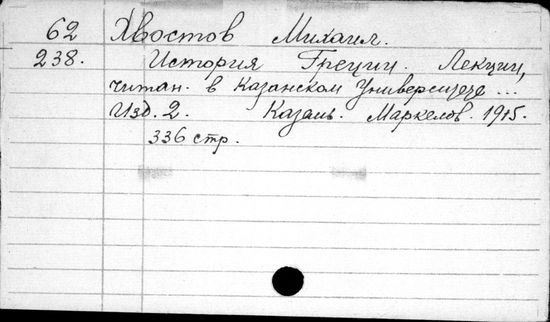 62 Хвостов Михаил.
238. История Греции. Лекции,
читан. в Казанском Университете ...
Изд. 2. Казань. Маркелов. 1915.
336 стр.